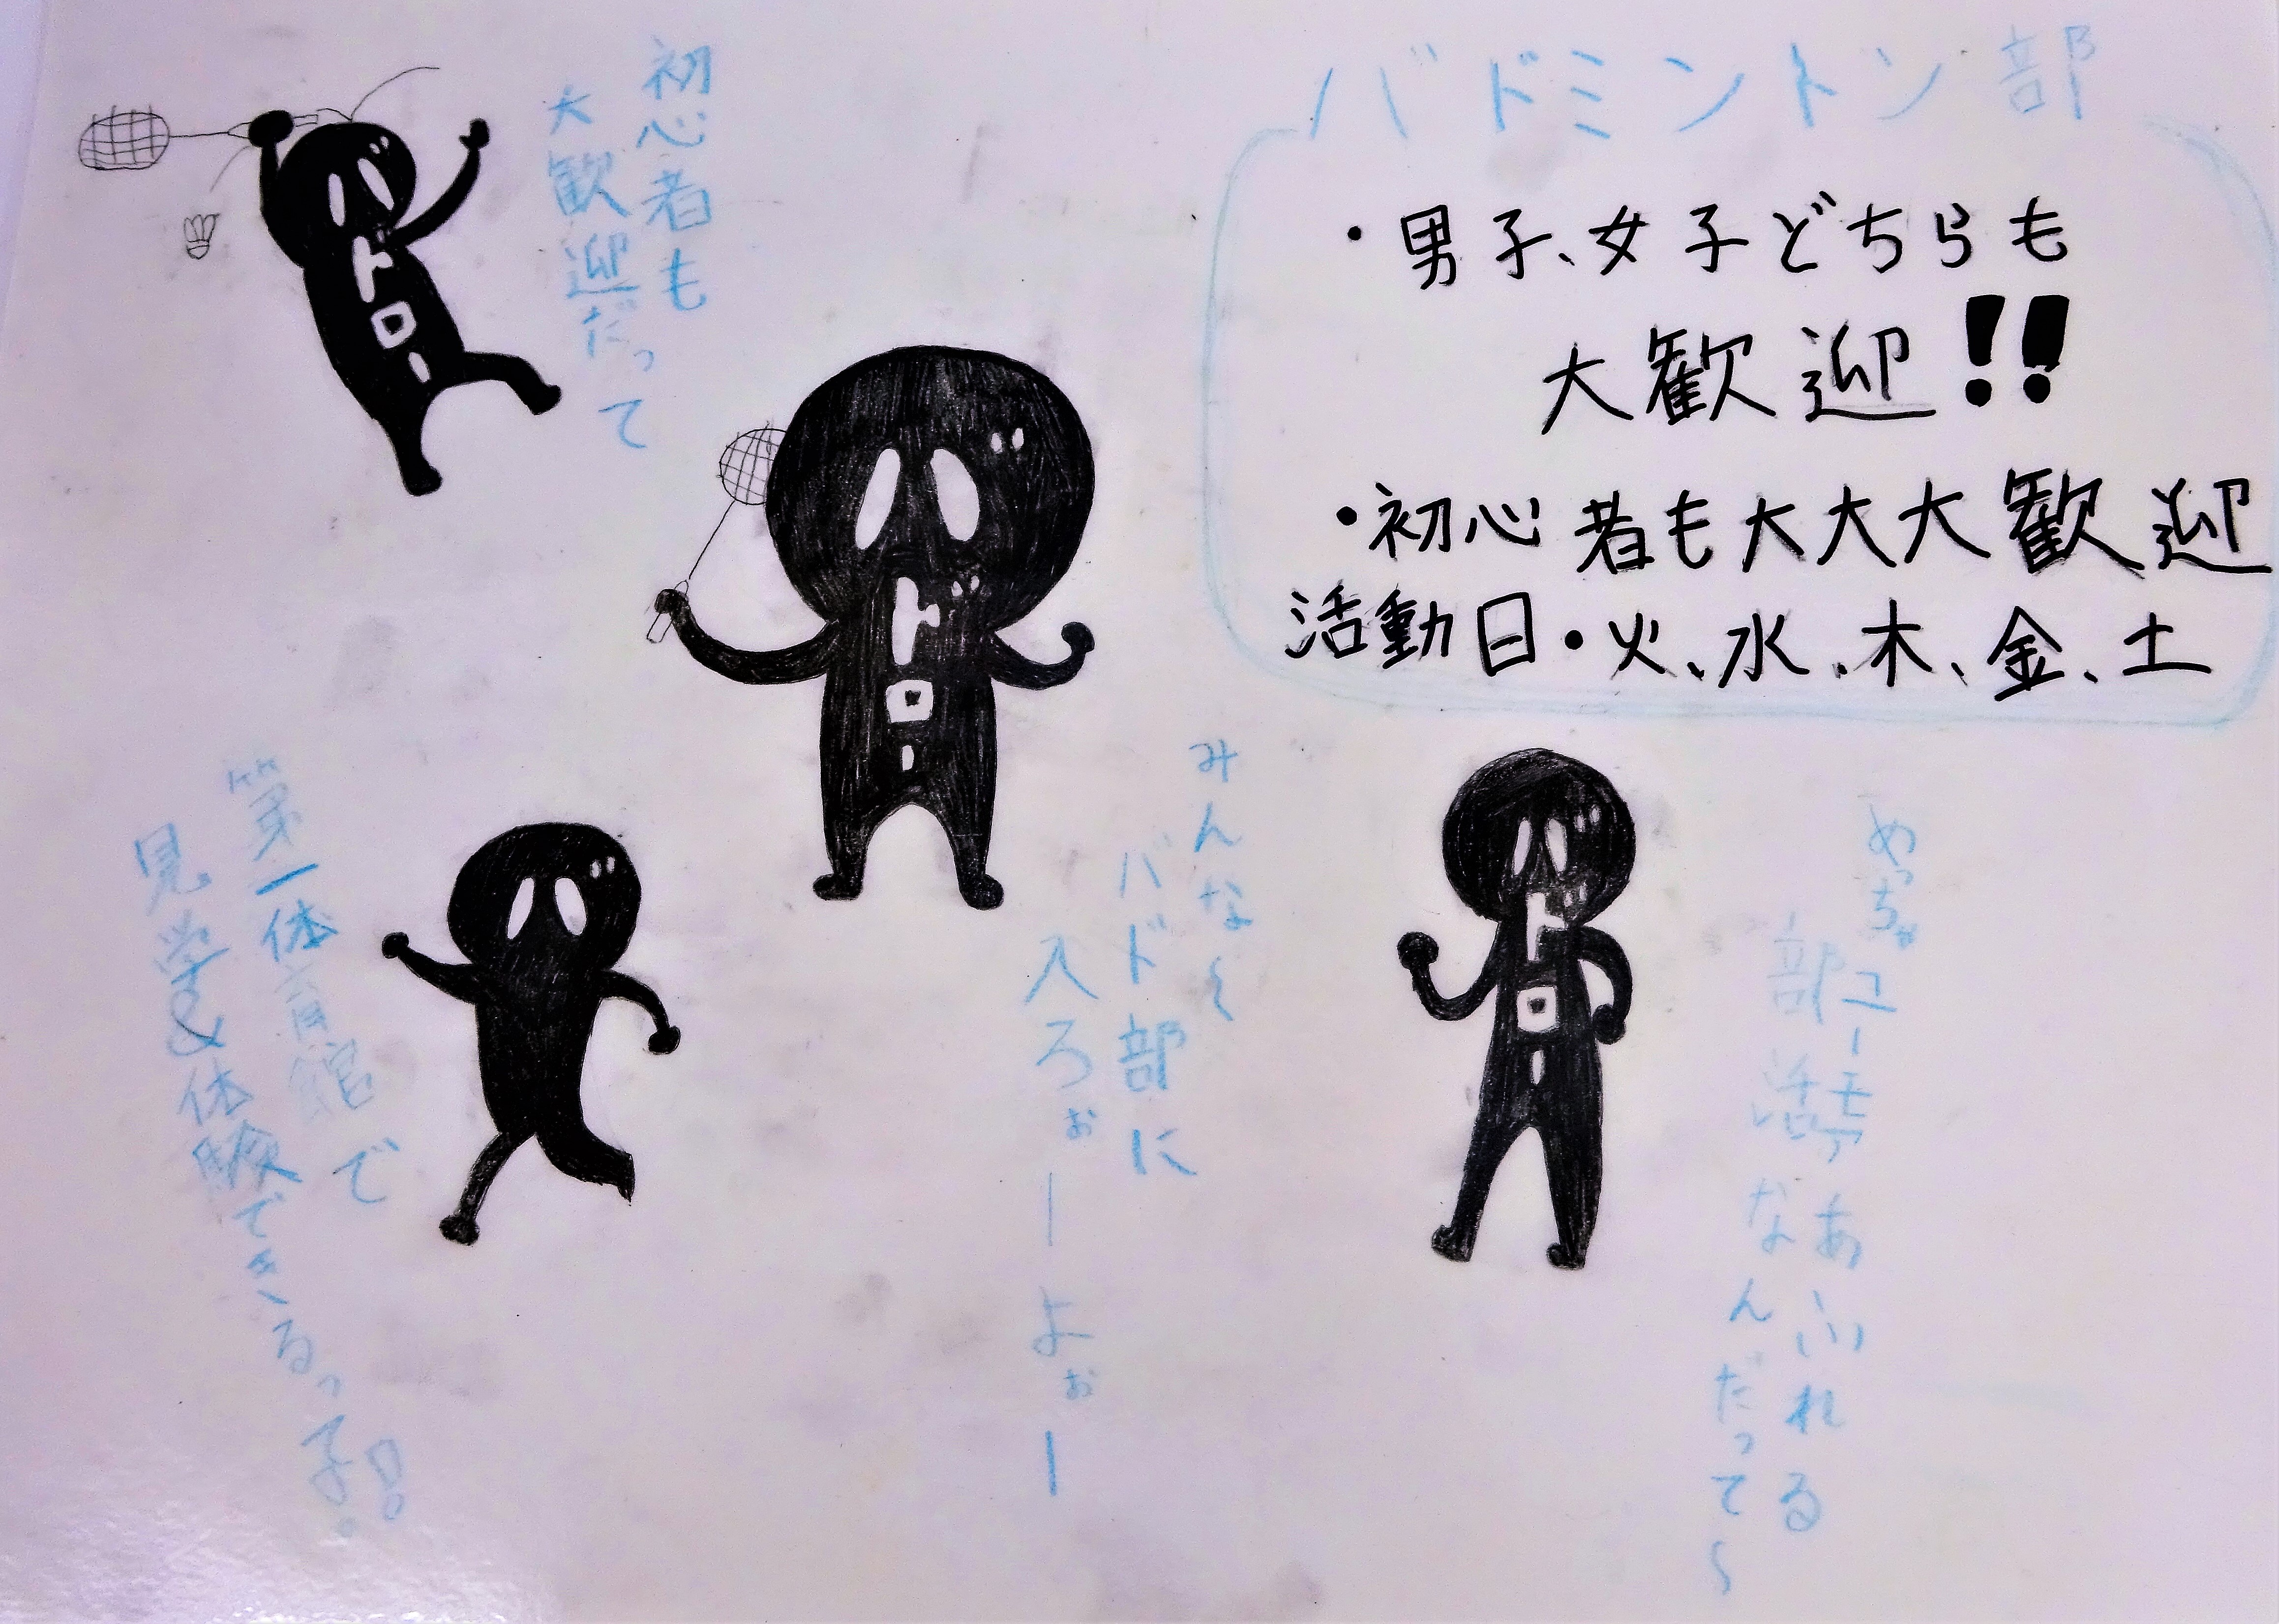 バドミントン部
・男子、女子どちらも
大歓迎!!
・初心者も大大大歓迎
活動日・火、水、木、金、土
初心者も
大歓迎だって
トロー
トロー
みんな〜
バド部に
入ろぉーよぉー
トロー
めっちゃユーモアあふれる
部活なんだって〜
第一体育館で
見学&体験できるって!